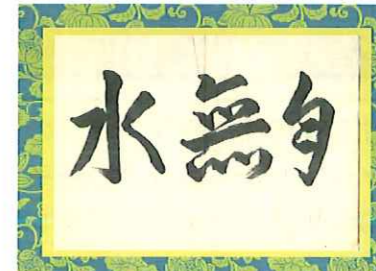 水無月